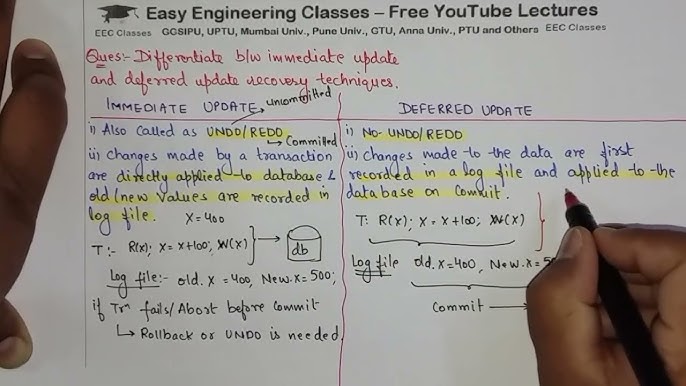 Easy Engineering Classes – Free YouTube Lectures
EEC Classes GGSIPU, UPTU, Mumbai Univ., Pune Univ., GTU, Anna Univ., PTU and Others EEC Classes
Ques:- Differentiate b/w immediate update
and deferred update recovery techniques.
IMMEDIATE UPDATE
uncommitted
i) Also called as UNDO/REDO
Committed
ii) Changes made by a transaction
are directly applied to database &
old/new values are recorded in
log file. X=400
T:- R(X); X = X+100; W(X)
db
Log file:- old. X = 400, New. X = 500;
if Trⁿ fails/Abort before commit
↳ Rollback or UNDO is needed.
DEFERRED UPDATE
i) No-UNDO/REDO
ii) Changes made to the data are first
recorded in a log file and applied to the
database on commit.
T: R(X); X = X+100; W(X)
Log file old. X=400, New. X=
Commit →